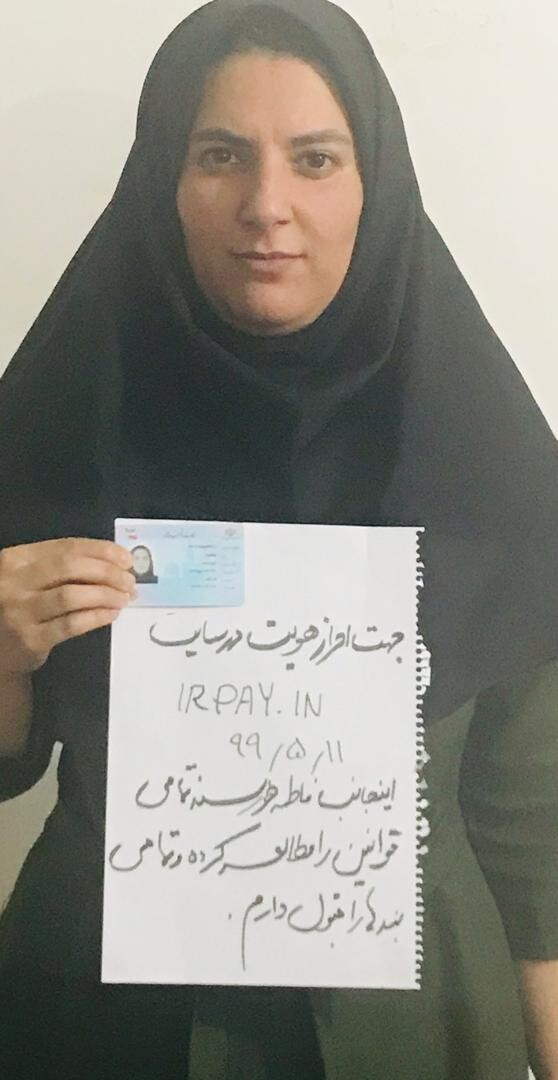 جهت احراز هویت در سایت
IRPAY.IN
۹۹/۵/۱۱
اینجانب فاطمه خورسند تمامی
قوانین را مطالعه کرده و تمامی
بندها را قبول دارم.